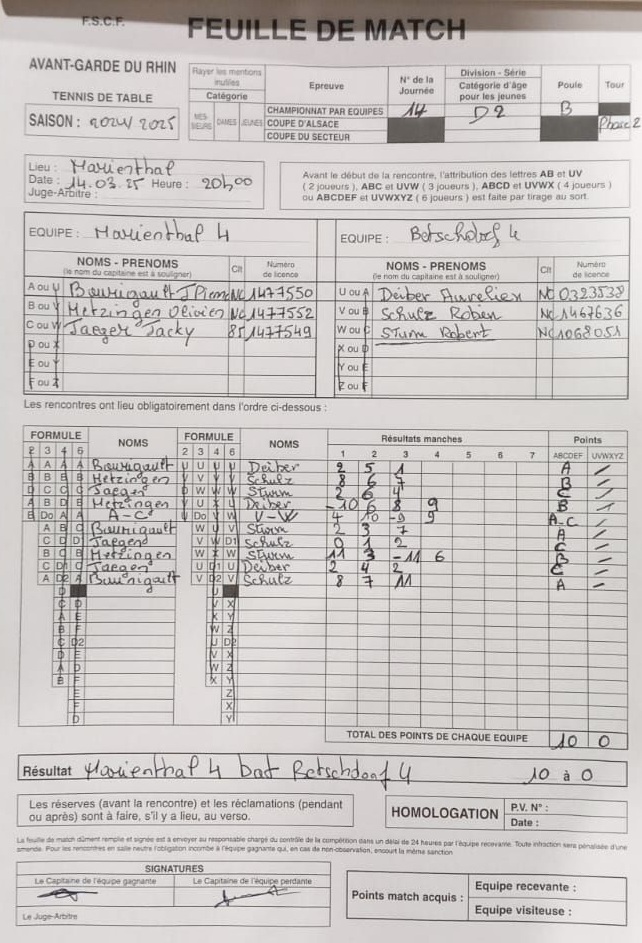 F.S.C.F.
FEUILLE DE MATCH
AVANT-GARDE DU RHIN
TENNIS DE TABLE
SAISON : 2024/2025
Rayer les mentions inutiles
Catégorie
MESSIEURS DAMES JEUNES
Epreuve
N° de la Journée
Division - Série
Catégorie d'âge pour les jeunes
Poule
Tour
CHAMPIONNAT PAR EQUIPES 14 D2 B
COUPE D'ALSACE Phase 2
COUPE DU SECTEUR
Lieu : Marienthal
Date : 14.03.25 Heure : 20h00
Juge-Arbitre :
Avant le début de la rencontre, l'attribution des lettres AB et UV
( 2 joueurs ), ABC et UVW ( 3 joueurs ), ABCD et UVWX ( 4 joueurs )
ou ABCDEF et UVWXYZ ( 6 joueurs ) est faite par tirage au sort.
EQUIPE : Marienthal 4
NOMS - PRENOMS
(le nom du capitaine est à souligner)
Clt
Numéro de licence
A ou U NC 1477550
B ou V Metzinger Olivier NC 1477552
C ou W Jaeger Jacky 85 1477549
D ou X
E ou Y
F ou Z
EQUIPE : Betschdorf 4
NOMS - PRENOMS
(le nom du capitaine est à souligner)
Clt
Numéro de licence
U ou A Deiber Aurelien NC 0323538
V ou B Schulz Robin NC 1467636
W ou C Sturm Robert NC 1068051
X ou D
Y ou E
Z ou F
Les rencontres ont lieu obligatoirement dans l'ordre ci-dessous :
FORMULE NOMS FORMULE NOMS Résultats manches Points
2 3 4 6 2 3 4 6 1 2 3 4 5 6 7 ABCDEF UVWXYZ
A A A A U U U U Deiber 2 5 1 A
B B B B Metzinger V V V V Schulz 8 6 7 B
D C C C Jaeger D W W W Sturm 2 6 4 C
A B D B Metzinger U X Deiber -10 6 8 9 B
B Do A A A-C V Do V W U-W 4 10 -9 9 A-C
A B C W U V Sturm 2 3 7 A
C D D1 Jaeger V W D1 Schulz 0 1 2 C
B C B Metzinger W X W Sturm 11 3 -11 6 B
C D1 C Jaeger U D1 U Deiber 2 4 2 C
A D2 A V D2 V Schulz 8 7 11 A
D U
C D V X
A E X Y
B F W Z
C D2 U D2
D E V X
A D W Z
B F X Y
E Z
F X
D Y
TOTAL DES POINTS DE CHAQUE EQUIPE 10 0
Résultat Marienthal 4 bat Betschdorf 4 10 à 0
Les réserves (avant la rencontre) et les réclamations (pendant
ou après) sont à faire, s'il y a lieu, au verso.
HOMOLOGATION
P.V. N° :
Date :
La feuille de match dûment remplie et signée est à envoyer au responsable chargé du contrôle de la compétition dans un délai de 24 heures par l'équipe recevante. Toute infraction sera pénalisée d'une
amende. Pour les rencontres en salle neutre l'obligation incombe à l'équipe gagnante qui, en cas de non-observation, encourt la même sanction
SIGNATURES
Le Capitaine de l'équipe gagnante
Le Capitaine de l'équipe perdante
Le Juge-Arbitre
Points match acquis :
Equipe recevante :
Equipe visiteuse :